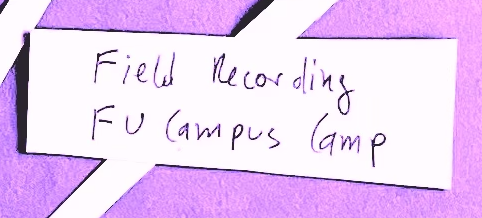 Field Recording
FU Campus Camp